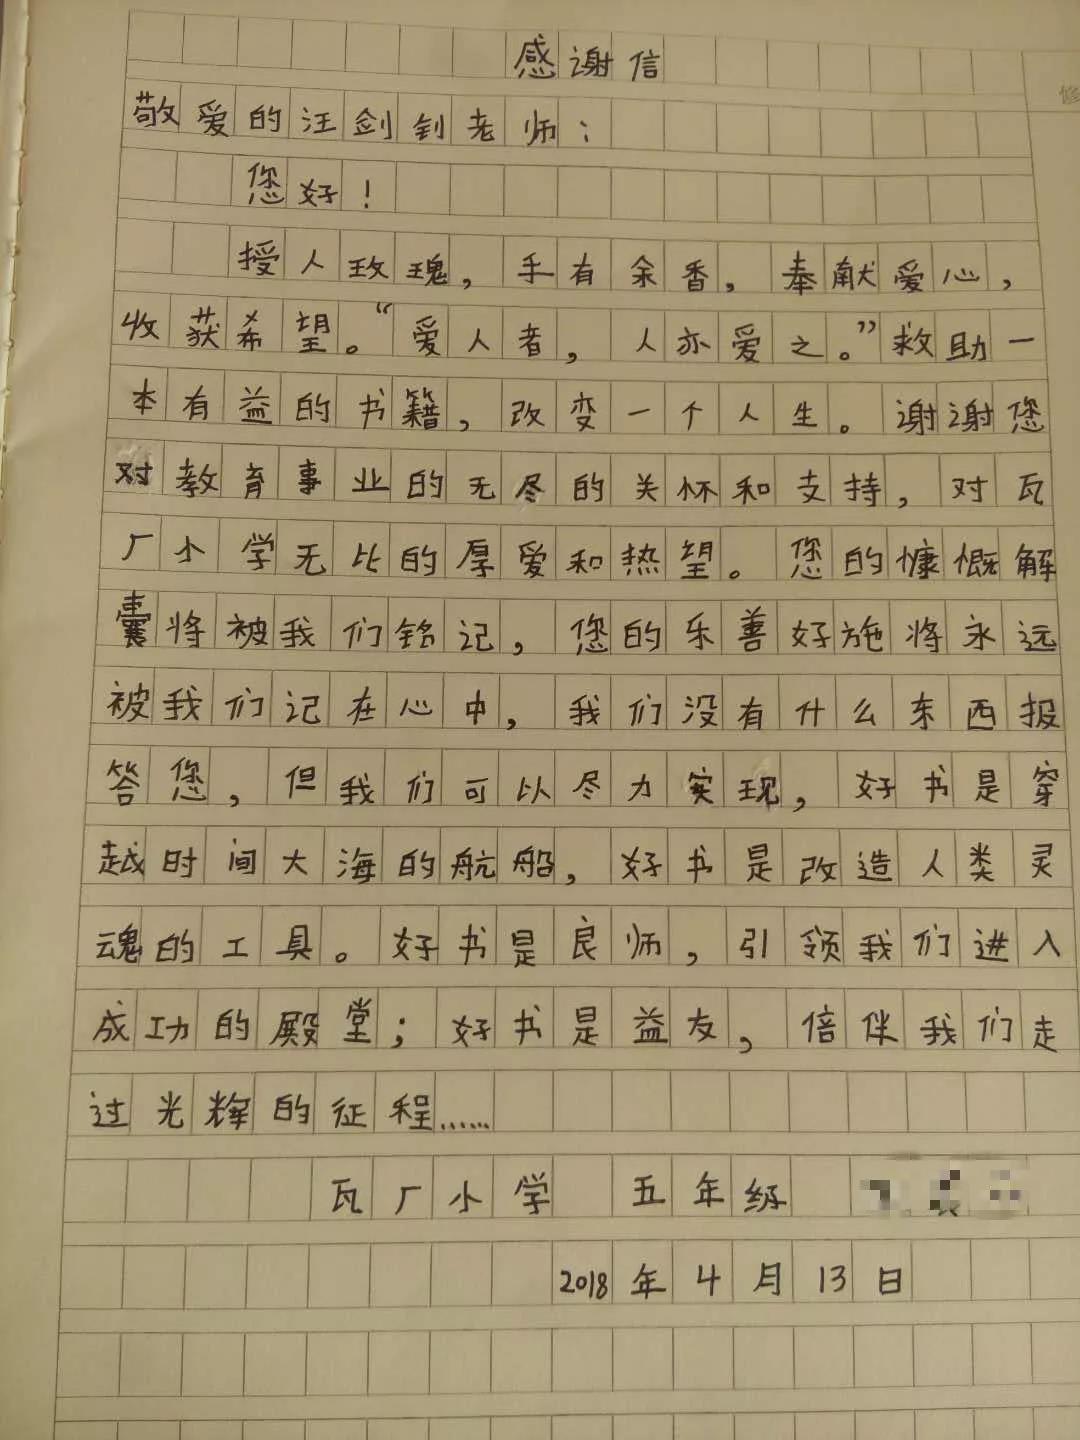 感谢信
敬爱的汪剑钊老师:
您好!
授人玫瑰,手有余香,奉献爱心,
收获希望。“爱人者,人亦爱之。”救助一
本有益的书籍,改变一个人生。谢谢您
对教育事业的无尽的关怀和支持,对瓦
厂小学无比的厚爱和热望。您的慷慨解
囊将被我们铭记,您的乐善好施将永远
被我们记在心中,我们没有什么东西报
答您,但我们可以尽力实现,好书是穿
越时间大海的航船,好书是改造人类灵
魂的工具。好书是良师,引领我们进入
成功的殿堂;好书是益友,倍伴我们走
过光辉的征程......
瓦厂小学 五年级
2018年4月13日